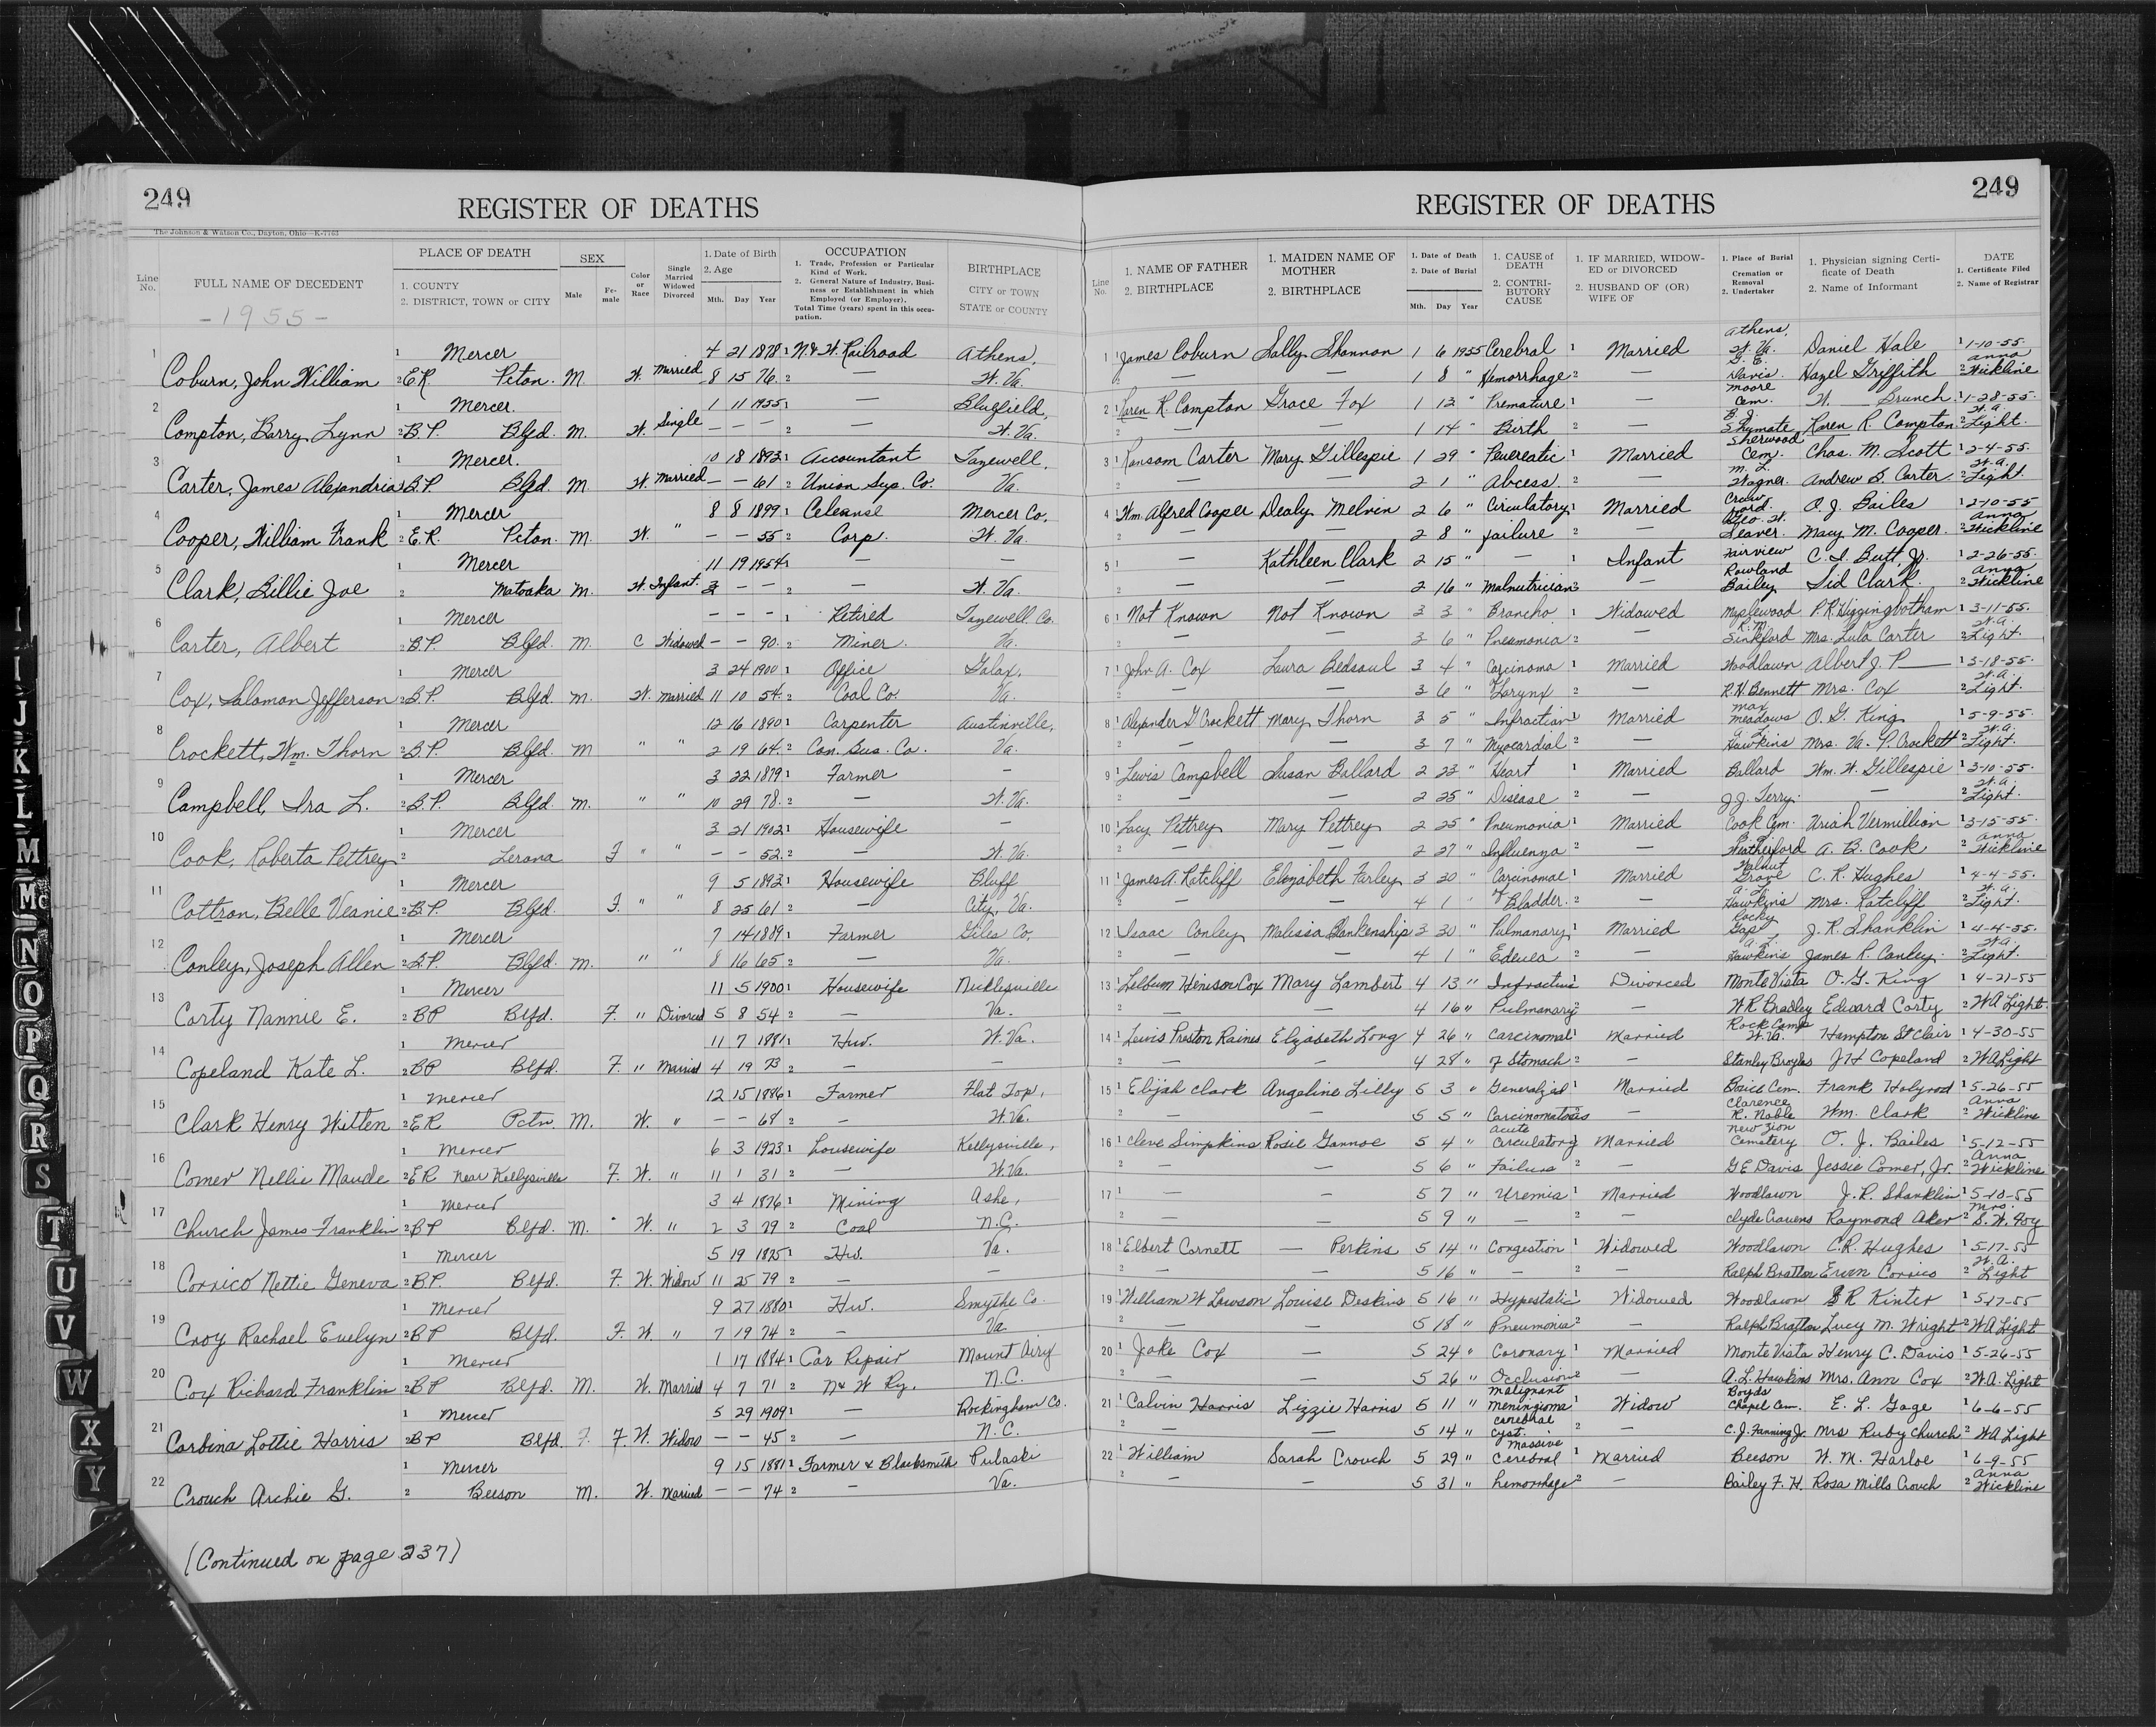 249 REGISTER OF DEATHS
The Johnson & Watson Co., Dayton, Ohio—K-7763
Line No. FULL NAME OF DECEDENT PLACE OF DEATH 1. COUNTY 2. DISTRICT, TOWN or CITY SEX Male Female Color or Race Single Married Widowed Divorced 1. Date of Birth 2. Age Mth. Day Year OCCUPATION 1. Trade, Profession or Particular Kind of Work. 2. General Nature of Industry, Business or Establishment in which Employed (or Employer). Total Time (years) spent in this occupation. BIRTHPLACE CITY or TOWN STATE or COUNTY
- 1955 -
1 Mercer 4 21 1878 1 N. & W. Railroad Athens,
Coburn, John William 2 E.R. Pcton. M. W. Married 8 15 76. 2 — W. Va.
2 1 Mercer. 1 11 1955 1 — Bluefield,
Compton, Barry Lynn 2 B.P. Blfd. M. W. Single — — — 2 — W. Va.
3 1 Mercer. 10 18 1893 1 Accountant Tazewell,
Carter, James Alexandria 2 B.P. Blfd. M. W. Married — — 61 2 Union Sup. Co. Va.
4 1 Mercer 8 8 1899 1 Celeanse Mercer Co.
Cooper, William Frank 2 E.R. Pcton. M. W. " — — 55 2 Corp. W. Va.
5 1 Mercer 11 19 1954 1 — —
Clark, Billie Joe 2 Matoaka M. W. Infant. 3 — — 2 W. Va.
6 1 Mercer — — — 1 Retired Tazewell Co.
Carter, Albert 2 B.P. Blfd. M. C Widowed — — 90. 2 Miner. Va.
7 1 Mercer 3 24 1900 1 Office Galax,
Cox, Salomon Jefferson 2 B.P. Blfd. M. W. Married 11 10 54. 2 Coal Co. Va.
8 1 Mercer 12 16 1890 1 Carpenter Austinville,
Crockett, Wm. Thorn 2 B.P. Blfd. M " " 2 19 64. 2 Con. Bus. Co. Va.
9 1 Mercer 3 22 1879 1 Farmer —
Campbell, Ira L. 2 B.P. Blfd. M. " " 10 29 78. 2 — W. Va.
10 1 Mercer 3 21 1902 1 Housewife —
Cook, Roberta Pettrey 2 Lerona F " " — — 52. 2 — W. Va.
11 1 Mercer 9 5 1893 1 Housewife Bluff
Cottron, Belle Veanie 2 B.P. Blfd. F. " " 8 25 61 2 — City, Va.
12 1 Mercer 7 14 1889 1 Farmer Giles Co.
Conley, Joseph Allen 2 B.P. Blfd. M. " " 8 16 65 2 — Va.
13 1 Mercer 11 5 1900 1 Housewife Nicklesville
Corty Nannie E. 2 BP Blfd. F. " Divorced 5 8 54 2 — Va.
14 1 Mercer 11 7 1881 1 Hw. W. Va.
Copeland Kate L. 2 BP Blfd. F. " Married 4 19 73 2 — —
15 1 Mercer 12 15 1886 1 Farmer Flat Top,
Clark Henry Witten 2 ER Pctn. M. W. " — — 68 2 — W. Va.
16 1 Mercer 6 3 1923 1 housewife Kellysville,
Comer Nellie Maude 2 ER Near Kellysville F. W. " 11 1 31 2 — W. Va.
17 1 Mercer 3 4 1876 1 Mining Ashe,
Church James Franklin 2 BP Blfd. M. W. " 2 3 79 2 Coal N.C.
18 1 Mercer 5 19 1825 1 Hw. Va.
Corrico Nettie Geneva 2 BP. Blfd. F. W. Widow 11 25 79 2 — —
19 1 Mercer 9 27 1880 1 Hw. Smythe Co.
Croy Rachael Evelyn 2 BP Blfd. F. W " 7 19 74 2 — Va.
20 1 Mercer 1 17 1884 1 Car Repair Mount Airy
Cox Richard Franklin 2 BP Blfd. M. W. Married 4 7 71 2 N & W Ry. N.C.
21 1 Mercer 5 29 1909 1 — Rockingham Co.
Carbina Lottie Harris 2 BP Blfd. F F. W. Widow — — 45 2 — N.C.
22 1 Mercer 9 15 1881 1 Farmer & Blacksmith Pulaski
Crouch Archie G. 2 Beeson M. W. Married — — 74 2 — Va.
(Continued on page 237)
REGISTER OF DEATHS 249
Line No. 1. NAME OF FATHER 2. BIRTHPLACE 1. MAIDEN NAME OF MOTHER 2. BIRTHPLACE 1. Date of Death 2. Date of Burial Mth. Day Year 1. CAUSE of DEATH 2. CONTRIBUTORY CAUSE 1. IF MARRIED, WIDOWED or DIVORCED 2. HUSBAND OF (OR) WIFE OF 1. Place of Burial Cremation or Removal 2. Undertaker 1. Physician signing Certificate of Death 2. Name of Informant DATE 1. Certificate Filed 2. Name of Registrar
1 1 James Coburn Sally Shannon 1 6 1955 Cerebral 1 Married Athens, W. Va. Daniel Hale 1 1-10-55.
2 — — 1 8 " Hemorrhage 2 — G. E. Davis. Hazel Griffith 2 Anna Wickline
2 1 Karen R. Compton Grace Fox 1 12 " Premature 1 — Moore Cem. W. Brunch 1 1-28-55.
2 — — 1 14 " Birth 2 — B. J. Shumate Karen R. Compton 2 W.A. Light.
3 1 Ransom Carter Mary Gillespie 1 29 " Pancreatic 1 Married Sherwood Cem. Chas. M. Scott 1 2-4-55.
2 — — 2 1 " Abcess. 2 — M. L. Wagner. Andrew B. Carter 2 W.A. Light.
4 1 Wm. Alfred Cooper Dealy Melvin 2 6 " Circulatory 1 Married Crawford. O. J. Bailes 1 2-10-55
2 — — 2 8 " failure 2 — Geo. W. Seaver. Macy M. Cooper. 2 Anna Wickline
5 1 — Kathleen Clark 2 15 " — 1 Infant Fairview C. I. Butt, Jr. 1 2-26-55.
2 — — 2 16 " Malnutrician 2 — Rowland Bailey Sid Clark. 2 Anna Wickline
6 1 Not Known Not Known 3 3 " Broncho 1 Widowed Maplewood P. R. Higginbotham 1 3-11-55.
2 — — 3 6 " Pneumonia 2 — R. M. Sinkford Mrs. Lula Carter 2 W.A. Light.
7 1 John A. Cox Laura Bedsaul 3 4 " Carcinoma 1 Married Woodlawn Albert J. P— 1 3-18-55.
2 — — 3 6 " of Larynx 2 — R. H. Bennett Mrs. Cox 2 W.A. Light.
8 1 Alexander G Crockett Mary Thorn 3 5 " Infraction 1 Married Max Meadows O. G. King 1 5-9-55.
2 — — 3 7 " Myocardial 2 — A. L. Hawkins Mrs. Va. P. Crockett 2 W.A. Light.
9 1 Lewis Campbell Susan Ballard 2 23 " Heart 1 Married Ballard Wm. W. Gillespie 1 3-10-55.
2 — — 2 25 " Disease 2 — J. J. Terry. — 2 W.A. Light.
10 1 Lacy Pettrey Mary Pettrey 2 25 " Pneumonia 1 Married Cook Cem. Uriah Vermillion 1 3-15-55.
2 — — 2 27 " Influenza 2 — Weatherford A. B. Cook 2 Anna Wickline
11 1 James A. Ratcliff Elizabeth Farley 3 30 " Carcinoma 1 Married Walnut Grove C. R. Hughes 1 4-4-55.
2 — — 4 1 " of Bladder. 2 — A. L. Hawkins Mrs. Ratcliff 2 W.A. Light.
12 1 Isaac Conley Malissa Blankenship 3 30 " Pulmonary 1 Married Rocky Gap J. R. Shanklin 1 4-4-55.
2 — — 4 1 " Edema 2 — A. L. Hawkins James R. Conley. 2 W.A. Light.
13 1 Lelburn Henison Cox Mary Lambert 4 13 " Infractive 1 Divorced Monte Vista O. G. King 1 4-21-55
2 — — 4 16 " Pulmonary 2 W R Bradley Edward Corty 2 WA Light.
14 1 Lewis Preston Raines Elizabeth Long 4 26 " Carcinoma 1 Married Rock Camp W. Va. Hampton St Clair 1 4-30-55
2 — — 4 28 " of Stomach 2 — Stanley Broyles JH Copeland 2 WA Light
15 1 Elijah Clark Angeline Lilly 5 3 " Generalized 1 Married Boice Cem. Frank Holyrood 1 5-26-55
2 — — 5 5 " Carcinomatosis 2 — Clarence R. Noble Wm. Clark 2 Anna Wickline
16 1 Cleve Simpkins Rosie Gannoe 5 4 " Acute Circulatory Married New Zion Cemetery O. J. Bailes 1 5-12-55
2 — — 5 6 " Failure 2 — G E Davis Jessie Comer, Jr. 2 Anna Wickline
17 1 — — 5 7 " Uremia 1 Married Woodlawn J. R. Shanklin 1 5-10-55
— — 5 9 " — 2 — Clyde Cravens Raymond Aker 2 Mrs. S. W. Foy
18 1 Elbert Cornett — Perkins 5 14 " Congestion 1 Widowed Woodlawn C.R. Hughes 1 5-17-55
2 — — 5 16 " — 2 — Ralph Bratton Erven Corrico 2 W.A. Light
19 1 William W Lawson Louise Deskins 5 16 " Hypostatic 1 Widowed Woodlawn S R Kinter 1 5-17-55
2 — — 5 18 " Pneumonia 2 — Ralph Bratton Lucy M. Wright 2 WA Light
20 1 Jake Cox — 5 24 " Coronary 1 Married Monte Vista Henry C. Davis 1 5-26-55
2 — — 5 26 " Occlusion 2 — A. L. Hawkins Mrs. Ann Cox 2 W.A. Light
21 1 Calvin Harris Lizzie Harris 5 11 " Malignant Meningioma 1 Widow Boyds Chapel Cem. E. L. Gage 1 6-6-55
2 — — 5 14 " cerebral cyst. 2 — C. J. Fanning Jr. Mrs Ruby Church 2 WA Light
22 1 William Sarah Crouch 5 29 " Massive Cerebral 1 Married Beeson W. M. Harloe 1 6-9-55
2 — — 5 31 " hemorrhage 2 — Bailey F. H. Rosa Mills Crouch 2 Anna Wickline
I
J
K
L
M
Mc
N
O
P
Q
R
S
T
U
V
W
X
Y